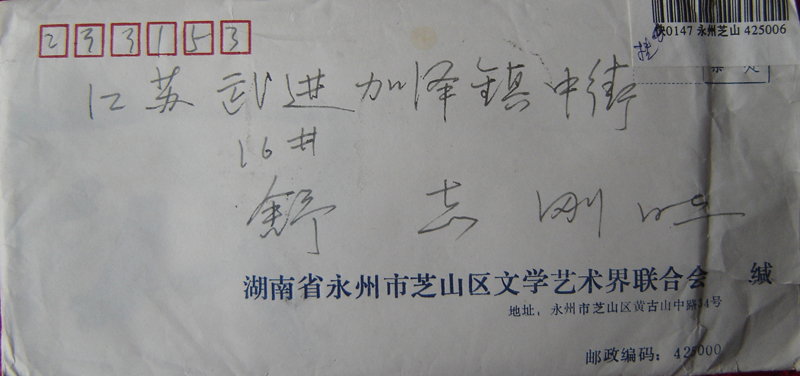 233153
0147 永州芝山 425006
江苏 武进 加泽镇 中街
16#
舒 志 刚 收
湖南省永州市芝山区文学艺术界联合会 缄
地址：永州市芝山区黄古山中路4号
邮政编码：425000